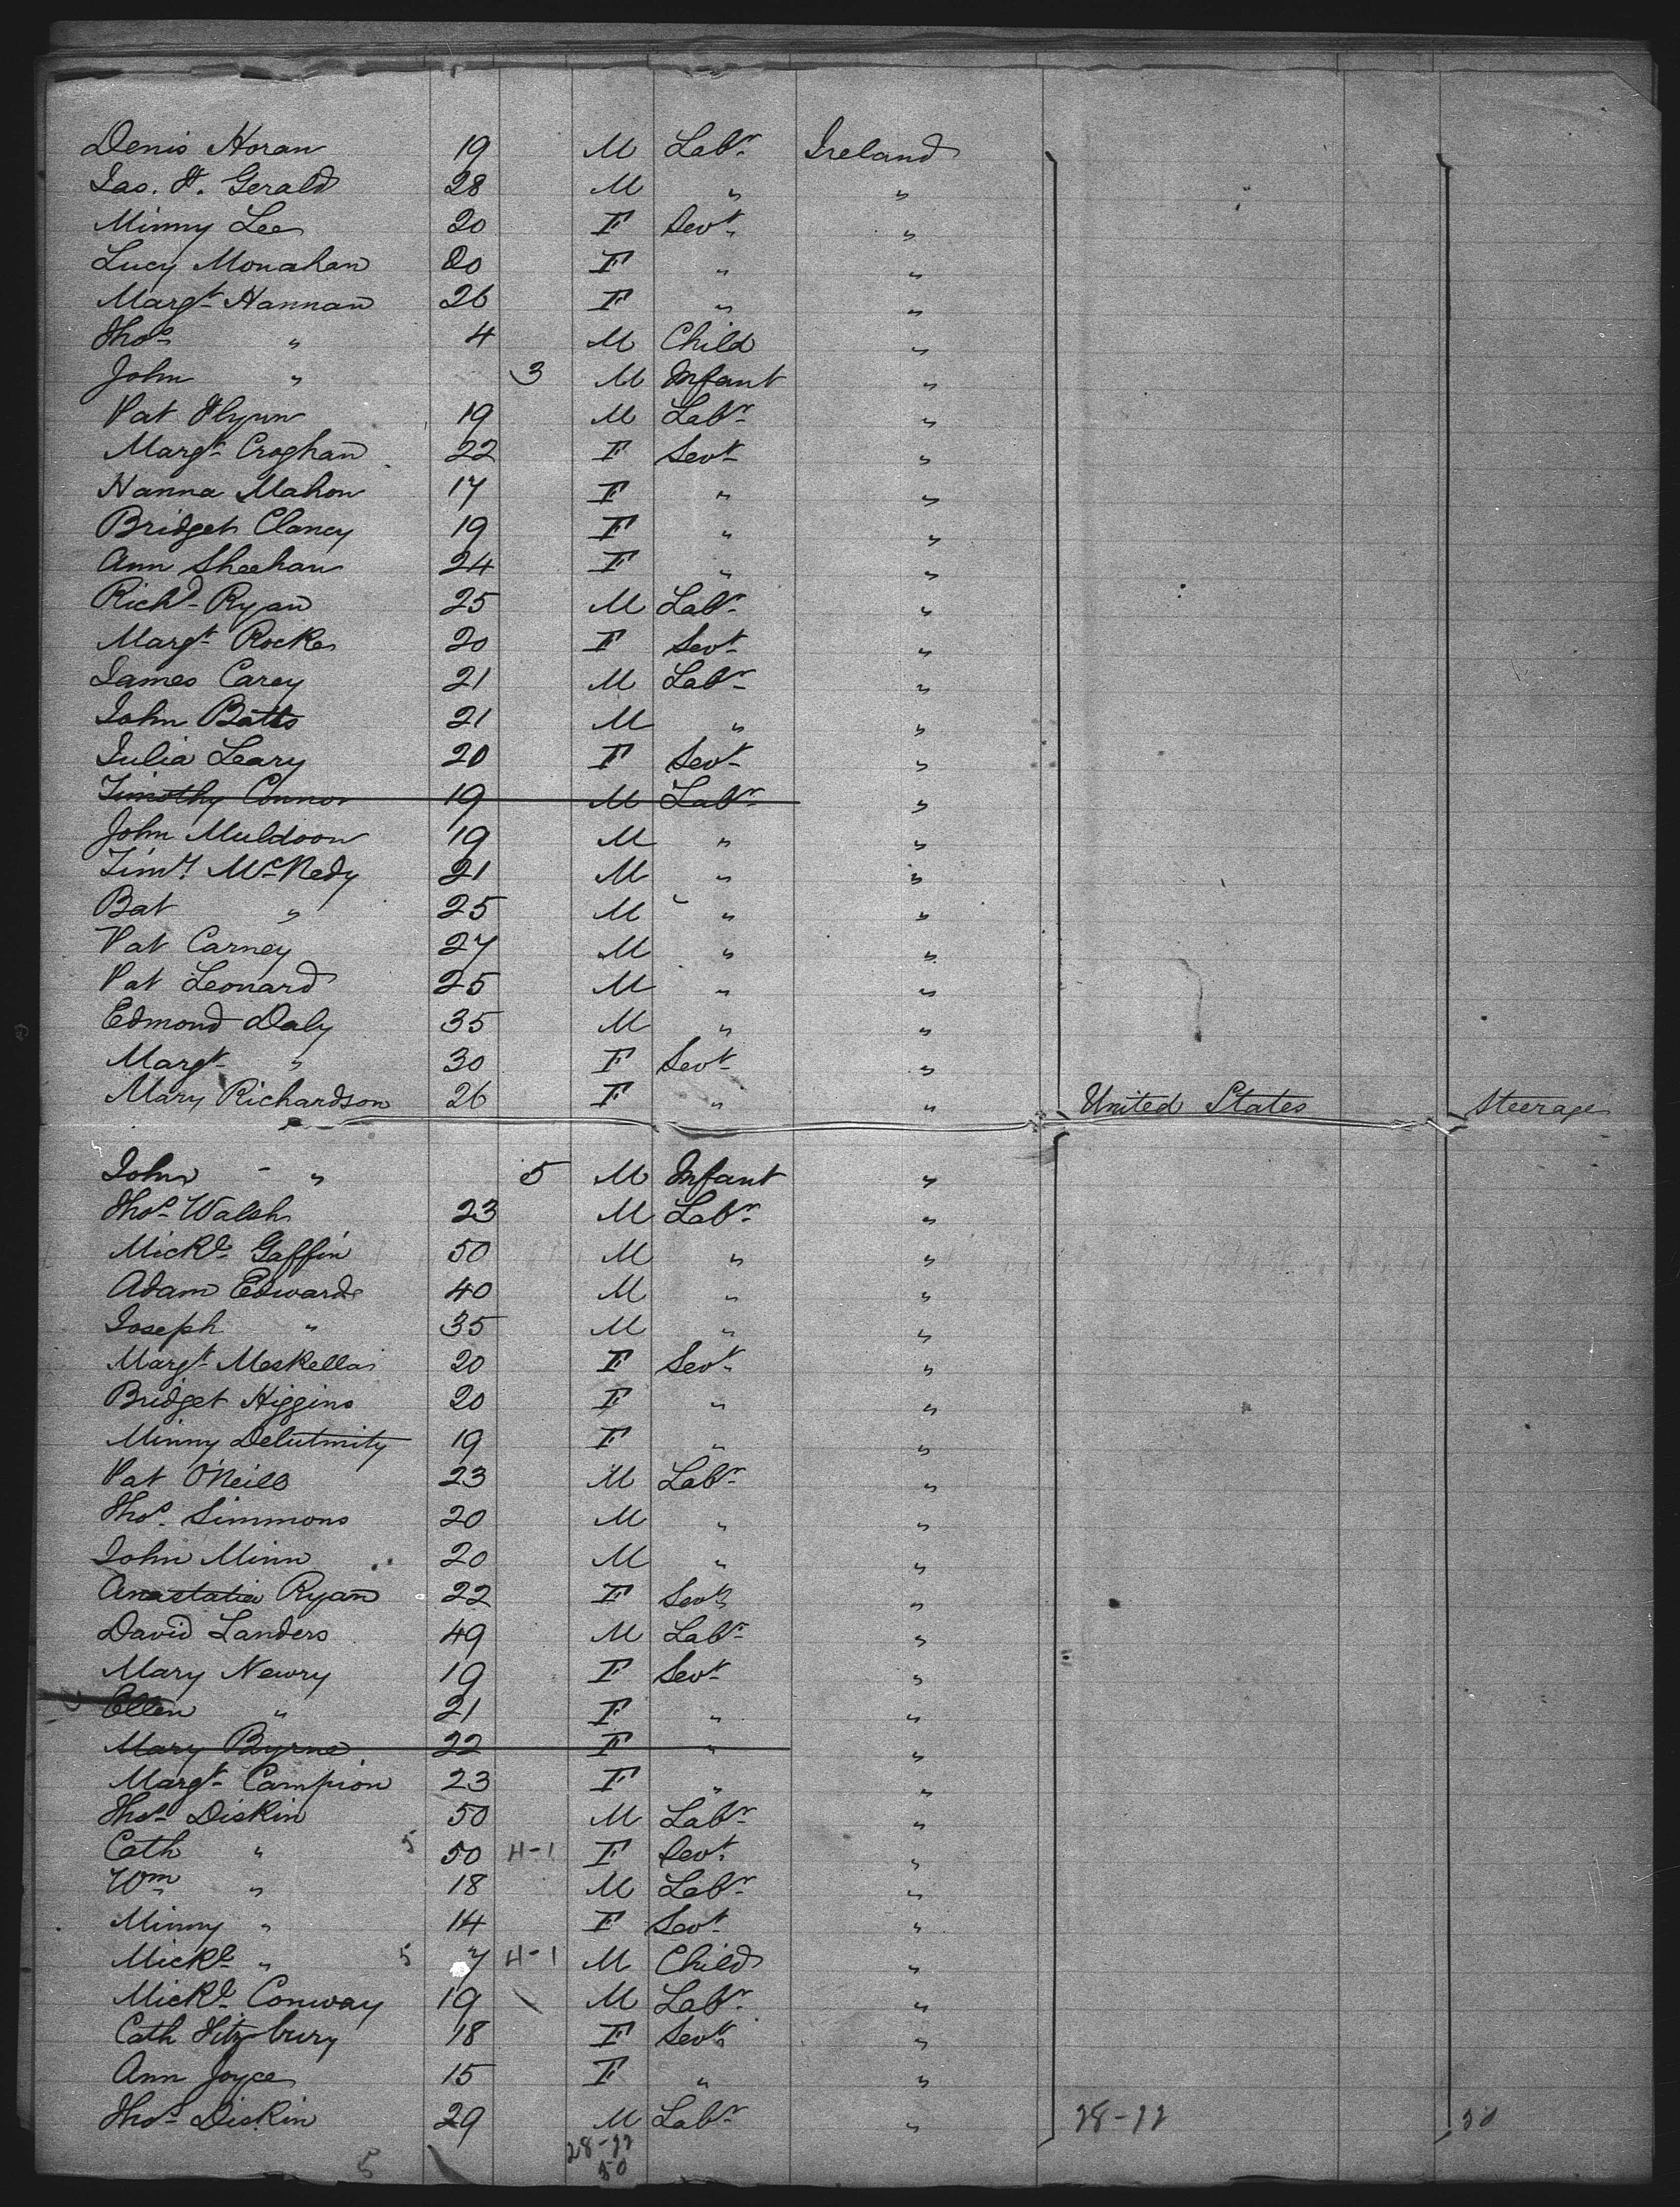 Denis Horan 19 M Labr. Ireland
Jas. F. Gerald 28 M " "
Minny Lee 20 F Sevt. "
Lucy Monahan 20 F " "
Margt. Hannan 26 F " "
Thos. " 4 M Child "
John " 3 M Infant "
Pat Flynn 19 M Labr. "
Margt. Croghan 22 F Sevt. "
Hanna Mahon 17 F " "
Bridget Clancy 19 F " "
Ann Sheehan 24 F " "
Richd. Ryan 25 M Labr. "
Margt. Rocke 20 F Sevt. "
James Carey 21 M Labr. "
John Batts 21 M " "
Julia Leary 20 F Sevt. "
Timothy Connor 19 M Labr. "
John Muldoon 19 M " "
Timy. McNedy 21 M " "
Bat " 25 M " "
Pat Carney 27 M " "
Pat Leonard 25 M " "
Edmond Daly 35 M " "
Margt. " 30 F Sevt. "
Mary Richardson 26 F " " United States Steerage
John " 5 M Infant "
Thos. Walsh 23 M Labr. "
Mickl. Gaffin 50 M " "
Adam Edwards 40 M " "
Joseph " 35 M " "
Margt. 20 F Sevt. "
Bridget Higgins 20 F " "
Minny 19 F " "
Pat O'Neill 23 M Labr. "
Thos. Simmons 20 M " "
John Minn 20 M " "
Anastatia Ryan 22 F Sevt. "
David Landers 49 M Labr. "
Mary Newry 19 F Sevt. "
Ellen " 21 F " "
Mary Byrne 22 F " "
Margt. Campion 23 F " "
Thos. Diskin 50 M Labr. "
Cath " 5 50 H-1 F Sevt. "
Wm. " 18 M Labr. "
Minny " 14 F Sevt. "
Mickl. " 5 7 H-1 M Child "
Mickl. Conway 19 M Labr. "
Cath Fitzbury 18 F Sevt. "
Ann Joyce 15 F " "
Thos. Diskin 29 M Labr. " 28-22 50
28-22
5 50